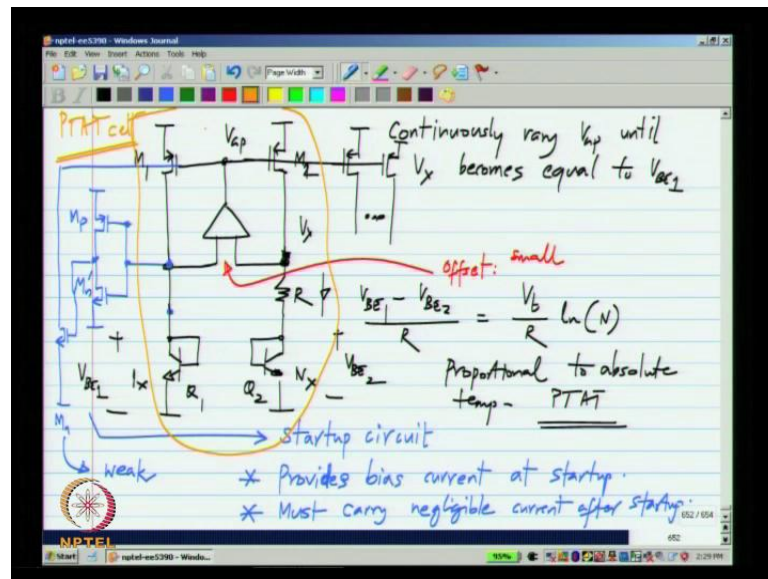 nptel-ee5390 - Windows Journal
File Edit View Insert Actions Tools Help
Page Width
PTAT cell
Vap
Continuously vary Vap until
Vx becomes equal to VBE1
M1
M2
...
Mp
Mn'
Vx
offset: small
R
VBE1 - VBE2 / R = Vb / R ln(N)
+
+
VBE1
1x
Q1
Q2
Nx
VBE2
-
-
Proportional to absolute
temp - PTAT
Mn
Startup circuit
weak
* Provides bias current at startup.
* Must carry negligible current after startup.
652 / 654
652
NPTEL
Start
nptel-ee5390 - Windo...
95%
2:29 PM